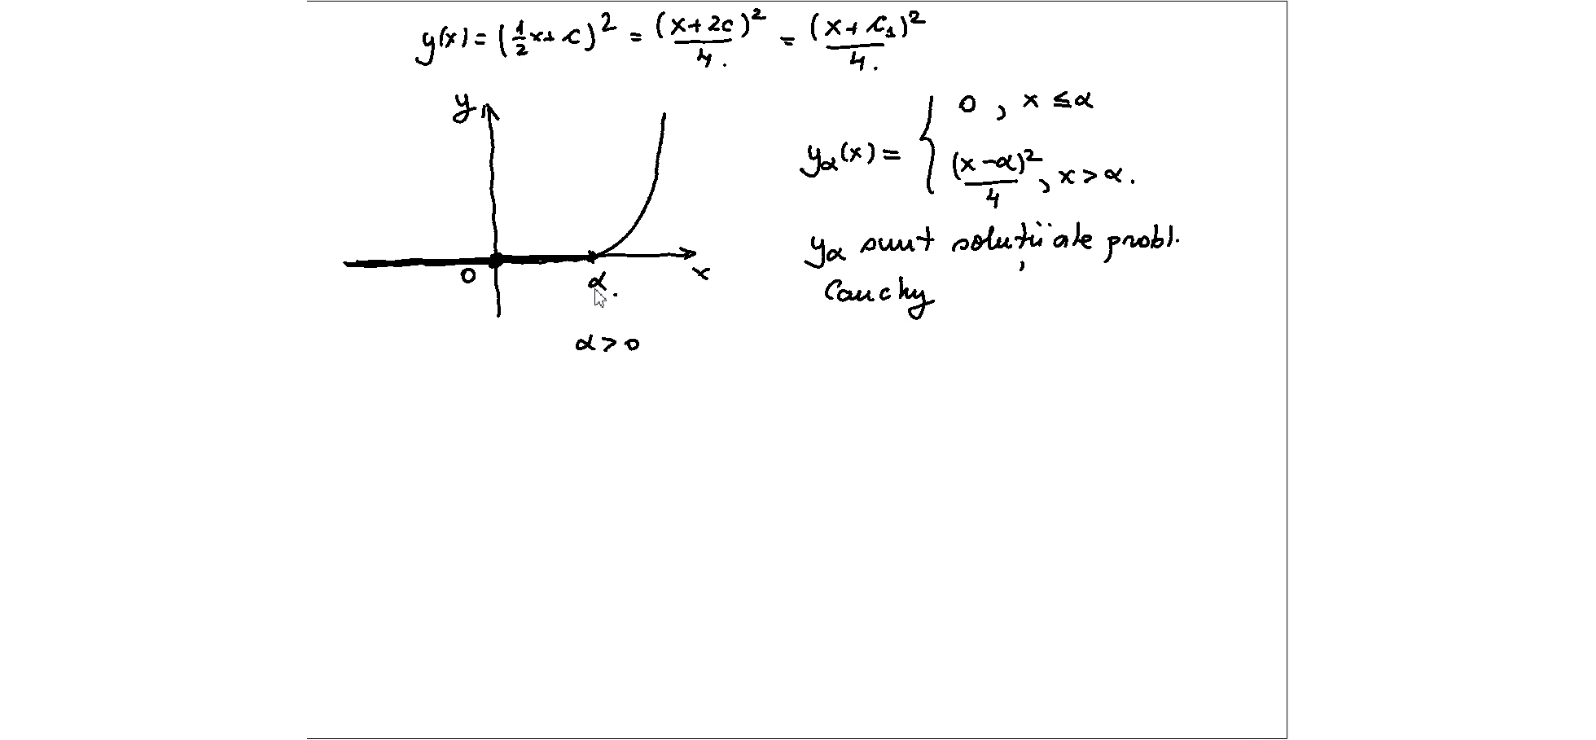 y(x) = (1/2 x + c)^2 = (x + 2c)^2 / 4. = (x + c₁)^2 / 4.
y
y_α(x) = { 0 , x ≤ α
(x - α)^2 / 4 , x > α.
y_α sunt soluții ale probl.
Cauchy
0 α. x
α > 0